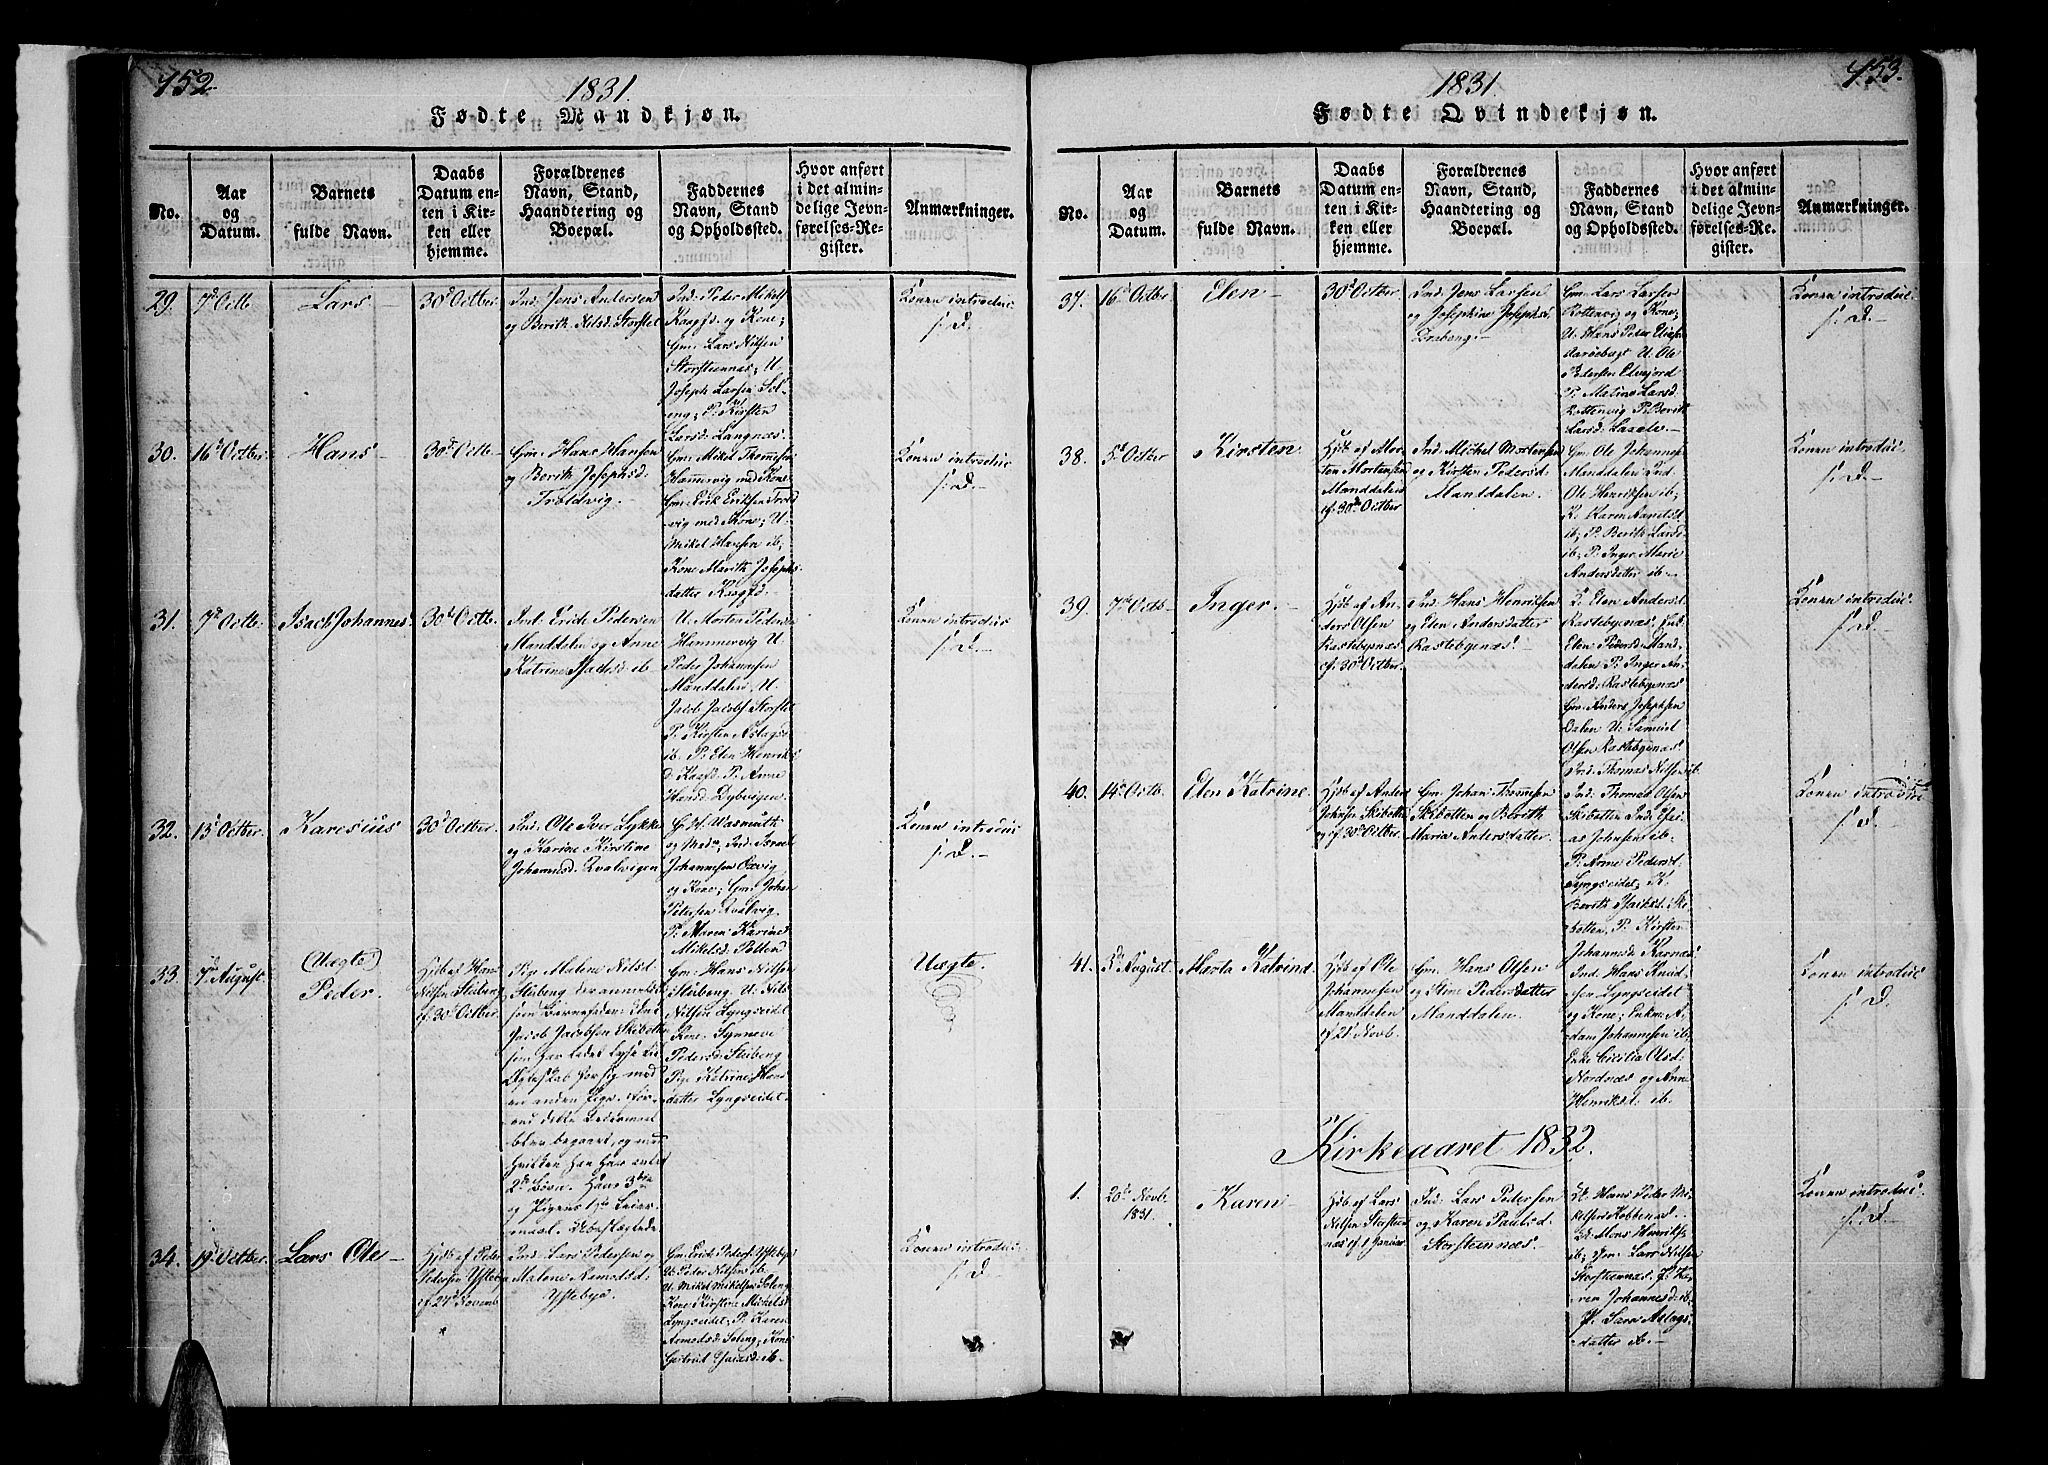 152.
1831.
Fødte Mandkjøn.
No.
Aar
og
Datum.
Barnets
fulde Navn.
Daabs
Datum en-
ten i Kir-
ken eller
hjemme.
Forældrenes
Navn, Stand,
Haandtering og
Boepæl.
Faddernes
Navn, Stand
og Opholdssted.
Hvor anført
i det almin-
delige Jevn-
førelses-Re-
gister.
Anmærkninger.
29. 7d Octb Lars 30d Octber
Ind: Jens Andersen
og Berith Nilsd: Storstet
Ind: Peder Mikels
Kaagsd. og Kone;
Gm: Lars Nilsen
Storsteennæs; U.
Joseph Larsen Sol-
eng; P: Kirsten
Larsd. Langnæs.
Konen introduc.
f. D.
30. 16d Octber Hans 30d Octb
Gm: Hans Hansen
og Berith Josephsd.
Troldvig.
Gm: Mikel Thomesen
Hammervig med Kone
Gm: Erik Eriksen Trold
vig med Kone; U.
Mikel Hansen ib;
Kone Marith Josephs-
datter Kaagsd.
Konen introduc
f. D.
31. 7d Octb. Isach Johannes. 30d Octb.
Ind: Erich Pedersen
Manddalen og Anne
Katrine Isachsd: ib
U. Morten Pedersen
Hammervig U.
Peder Johannesen
Manddalen U.
Jacob Jacobs Storstet
P. Kirsten Aslags
ib. P: Elen Henriks
d. Kaafd. P: Anne
Hansd. Dybvigen.
Konen introduc
f. D.
32. 13d Octber. Karesius 30d Octber.
Ind: Ole Iver Lykke
og Karine Kirstine
Johannesd. Kvalvigen
Hr. Wasmuth
og Mad; Ind: Israel
Johannesen Oxvig
og Kone; Gm: Johan
Petersen Kvalvig.
P: Maren Karine
Mikelsd. Pollen
Konen introduc
f. D.
33. 7d August. (Uægte)
Peder.
Hjdb af Hans
Nilsen Stuberg
cf. 30 Octber.
Pige Malene Nilsd.
Stuberg der anmeldte
som Barnefader: Ind:
Jacob Jacobsen Skibotten
som har ladet lyse til
Ægteskab for sig med
en anden Pige, før
end dette Leiermaal
blev begaaet, og med
hvilken han har avlet
2de Børn. Hans 3die
og Pigens 1ste Leier-
maal. Ubeslægtede
Gm: Hans Nilsen
Stuberg. U. Nils
Nilsen Lyngseidet
Kone. Synneve
Pedersd: Stuberg
Pige Katrine Hans
datter Lyngseidet.
Uægte.
34. 19d Octber. Lars Ole
Hjdb af Peder
Pedersen Ysteby
cf 27d Novemb
Ind: Lars Pedersen og
Malene Armodsd:
Ystebye
Gm: Erich Peders: Ystebye
U. Peder Nilsen ib.
U. Mikel Mikelsen Soleng
Kone Kirstine Mickelsd
Lyngseidet; P: Karen
Armodsd: Soleng; Kone
Gertrud Isacsd: ib.
Konen introduc:
f. D.
153.
1831.
Fødte Qvindekjøn.
No.
Aar
og
Datum.
Barnets
fulde Navn.
Daabs
Datum en-
ten i Kir-
ken eller
hjemme.
Forældrenes
Navn, Stand,
Haandtering og
Boepæl.
Faddernes
Navn, Stand
og Opholdssted.
Hvor anført
i det almin-
delige Jevn-
førelses-Re-
gister.
Anmærkninger.
37. 16d Octber Elen 30d Octber.
Ind: Jens Larsen
og Josephine Josephsd.
Gm: Lars Larsen
Rottenvig og Kone;
U: Hans Peder
U. Ole
Pedersen Elvejord
P: Maline Larsd.
Rottenvig P: Berith
Larsd:
Konen introduc.
f. D.
38. 5d Octber Kirsten
Hjdb af Mor
ten Mortensen
Manddalen
cf. 30d Octber
Ind: Michel Mortensen
og Kirsten Pedersd.
Manddalen.
Gm: Ole Johannes
Manddalen Ind:
Ole Henriksen ib;
K: Karen Aandsd
ib; P: Berith Larsd.
ib; P: Inger Marie
Andersdatter ib
Konen introduc.
f. D.
39. 7d Octb Inger.
Hjdb af An
ders Olsen
Rastebynæs
cf. 30d Octber.
Ind: Hans Henriksen
og Elen Andersdatter
Rastebynæs.
K. Elen Andersd
Rastebynæs. Ind:
Elen Pedersd: Mand
dalen P: Inger An-
dersd: Rastebynæs
Gm: Anders Josephsen
Dalen U: Samuel
Olsen Rastebynæs
Ind: Thomas Nilsen ib.
Konen introduc.
f. D.
40. 14d Octb. Elen Katrine
Hjdb af Anders
Johnsen Skibotten
cf. 30 Octber
Gm: Johan Thomesen
Skibotten og Berith
Maria Andersdatter
Ind: Thomas Olsen
Skibotten Ind: Esai-
as Johnsen ib.
P: Anne Pedersd.
Lyngseidet; K.
Berith Isachsd: Ski
botten, P. Kirsten
Johannesd: Karnæs
Konen introduc
f. D.
41. 5d August. Marta Katrine
Hjdb af Ole
Johannesen
Manddalen
cf 21d Novb.
Gm: Hans Olsen
og Stine Pedersdatter
Manddalen.
Ind. Hans Knud
sen Lyngseidet
og Kone; Enkm: A-
dam Johannesen ib;
Enke Cicilia Olsd.
Nordnæs og Anne
Henriksd: ib.
Konen introduc
f. D.
Kirkeaaret 1832.
1. 20d Novb.
1831. Karen
Hjdb af Lars
Nilsen Storsteen
næs cf 1 Januar
Ind: Lars Pedersen
og Karen Paulsd.
Storsteennæs.
U. Hans Peder Mi-
kelsen Kobbenæs
U. Mons Henriks
ib; Gm: Lars Nilsen
Storsteennæs. P. Ka-
ren Johannesd: ib.
P. Sara Aslags-
datter ib.
Konen introduc.
f. D.